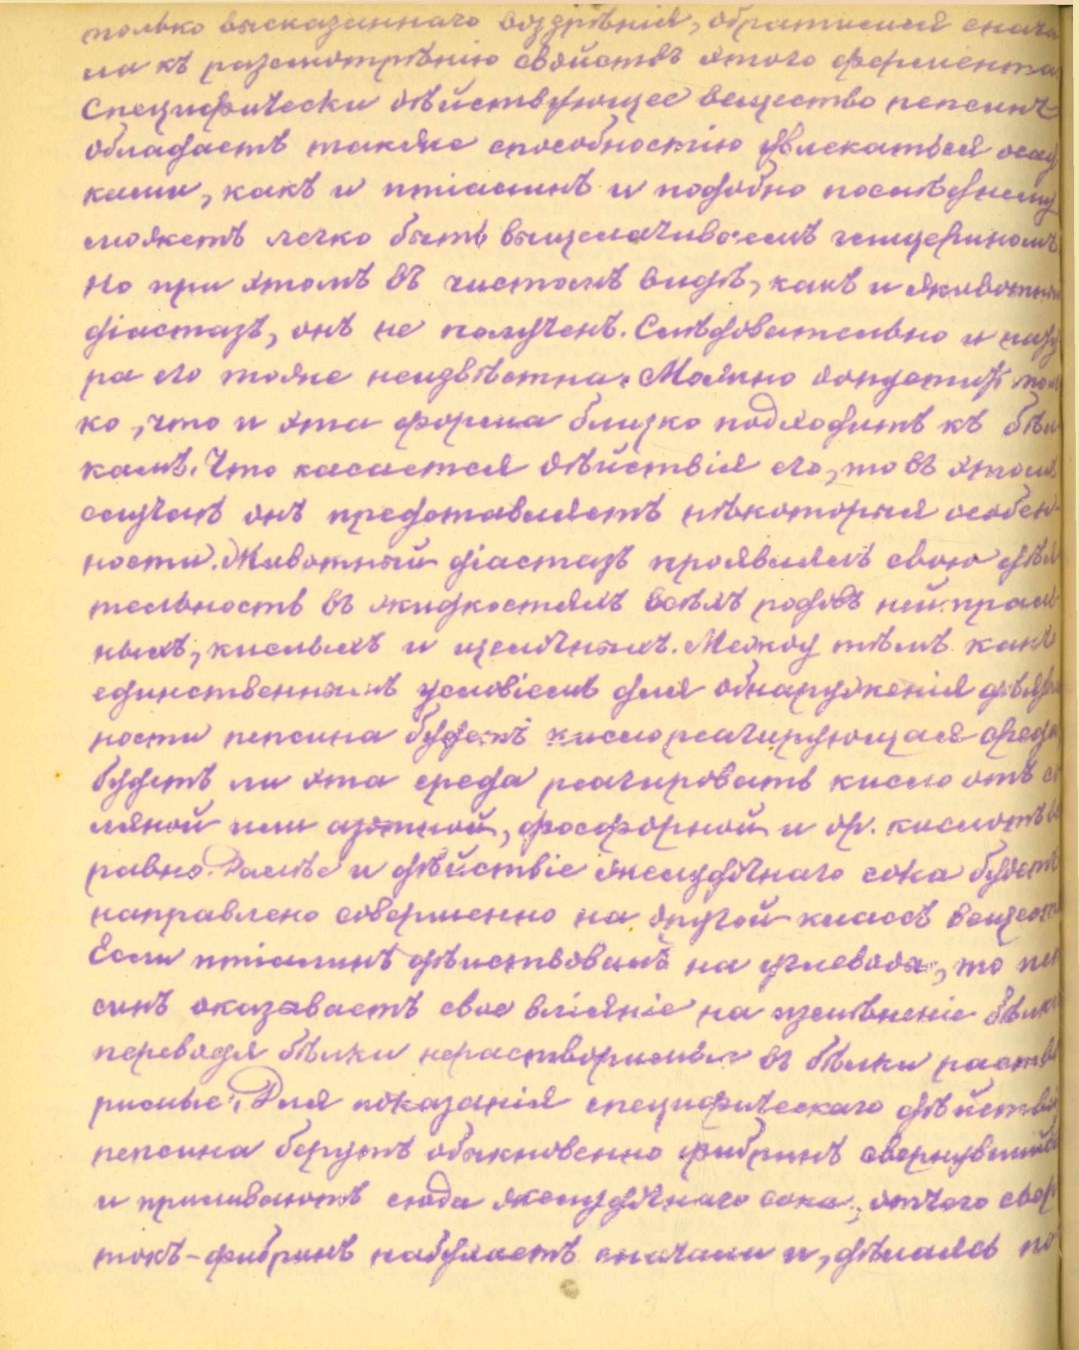 только высказаннаго воззрѣнія, обратимся снача
ла къ разсмотрѣнію свойствъ этого фермента
Специфически дѣйствующее вещество пепсинъ
обладаетъ также способностію увлекаться осад
ками, какъ и птіалинъ и подобно послѣднему
можетъ легко быть выщелачиваемъ глицериномъ
Но при этомъ въ чистомъ видѣ, какъ и животный
діастазъ, онъ не полученъ. Слѣдовательно и нату
ра его тоже неизвѣстна. Можно допустить толь
ко, что и эта форма близко подходитъ къ бѣл
камъ. Что касается дѣйствія его, то въ этомъ
случаѣ онъ представляетъ нѣкоторыя особен-
ности. Животный діастазъ проявлялъ свою дѣя
тельность въ жидкостяхъ всѣхъ родовъ нейтраль
ныхъ, кислыхъ и щелочныхъ. Между тѣмъ какъ
единственнымъ условіемъ для обнаруженія дѣятель
ности пепсина будетъ кислореагирующая среда
будетъ ли эта среда реагировать кисло отъ со
ляной или азотной, фосфорной и др. кислотъ все
равно. Далѣе и дѣйствіе желудочнаго сока будетъ
направлено совершенно на другой классъ веществъ
Если птіалинъ дѣйствовалъ на углеводы, то пеп
синъ оказываетъ свое вліяніе на измѣненіе бѣлковъ
переводя бѣлки нерастворимые въ бѣлки раство
римые. Для показанія специфическаго дѣйствія
пепсина берутъ обыкновенно фибринъ свернувшійся
и приливаютъ сюда желудочнаго сока, отчего свер
токъ-фибринъ набухаетъ сначала и, дѣлаясь по